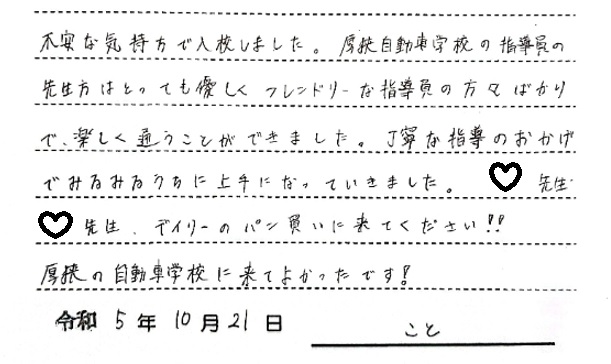 不安な気持ちで入校しました。厚狭自動車学校の指導員の
先生方はとっても優しくフレンドリーな指導員の方々ばかり
で、楽しく通うことができました。丁寧な指導のおかげ
でみるみるうちに上手になっていきました。♡先生
♡先生、デイリーのパン買いに来てください!!
厚狭の自動車学校に来てよかったです!
令和5年10月21日 こと